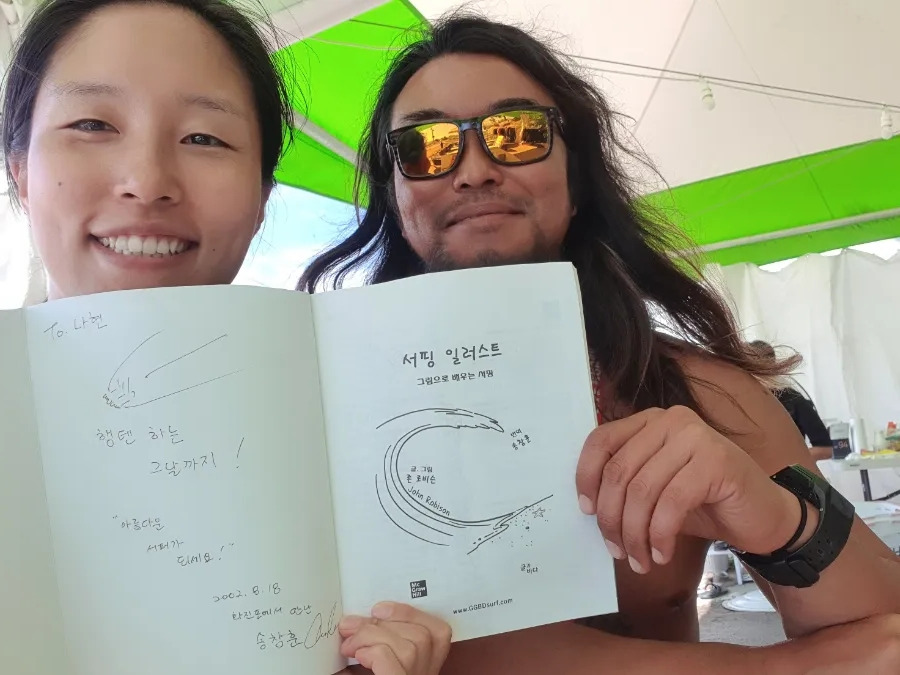 To. 나현
행텐 하는
그날까지 !
"아름다운
서퍼가
되세요!"
2002. 8. 18
타진포에서 만난
송창훈
서핑 일러스트
그림으로 배우는 서핑
번역
송창훈
글·그림
존 로비슨
John Robison
Mc
Graw
Hill
www.GGBDsurf.com